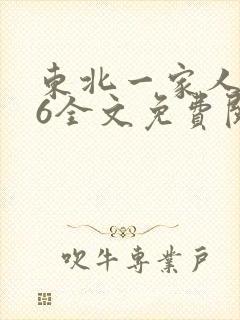 東北一家人
6全文免費閱
吹牛專業戶